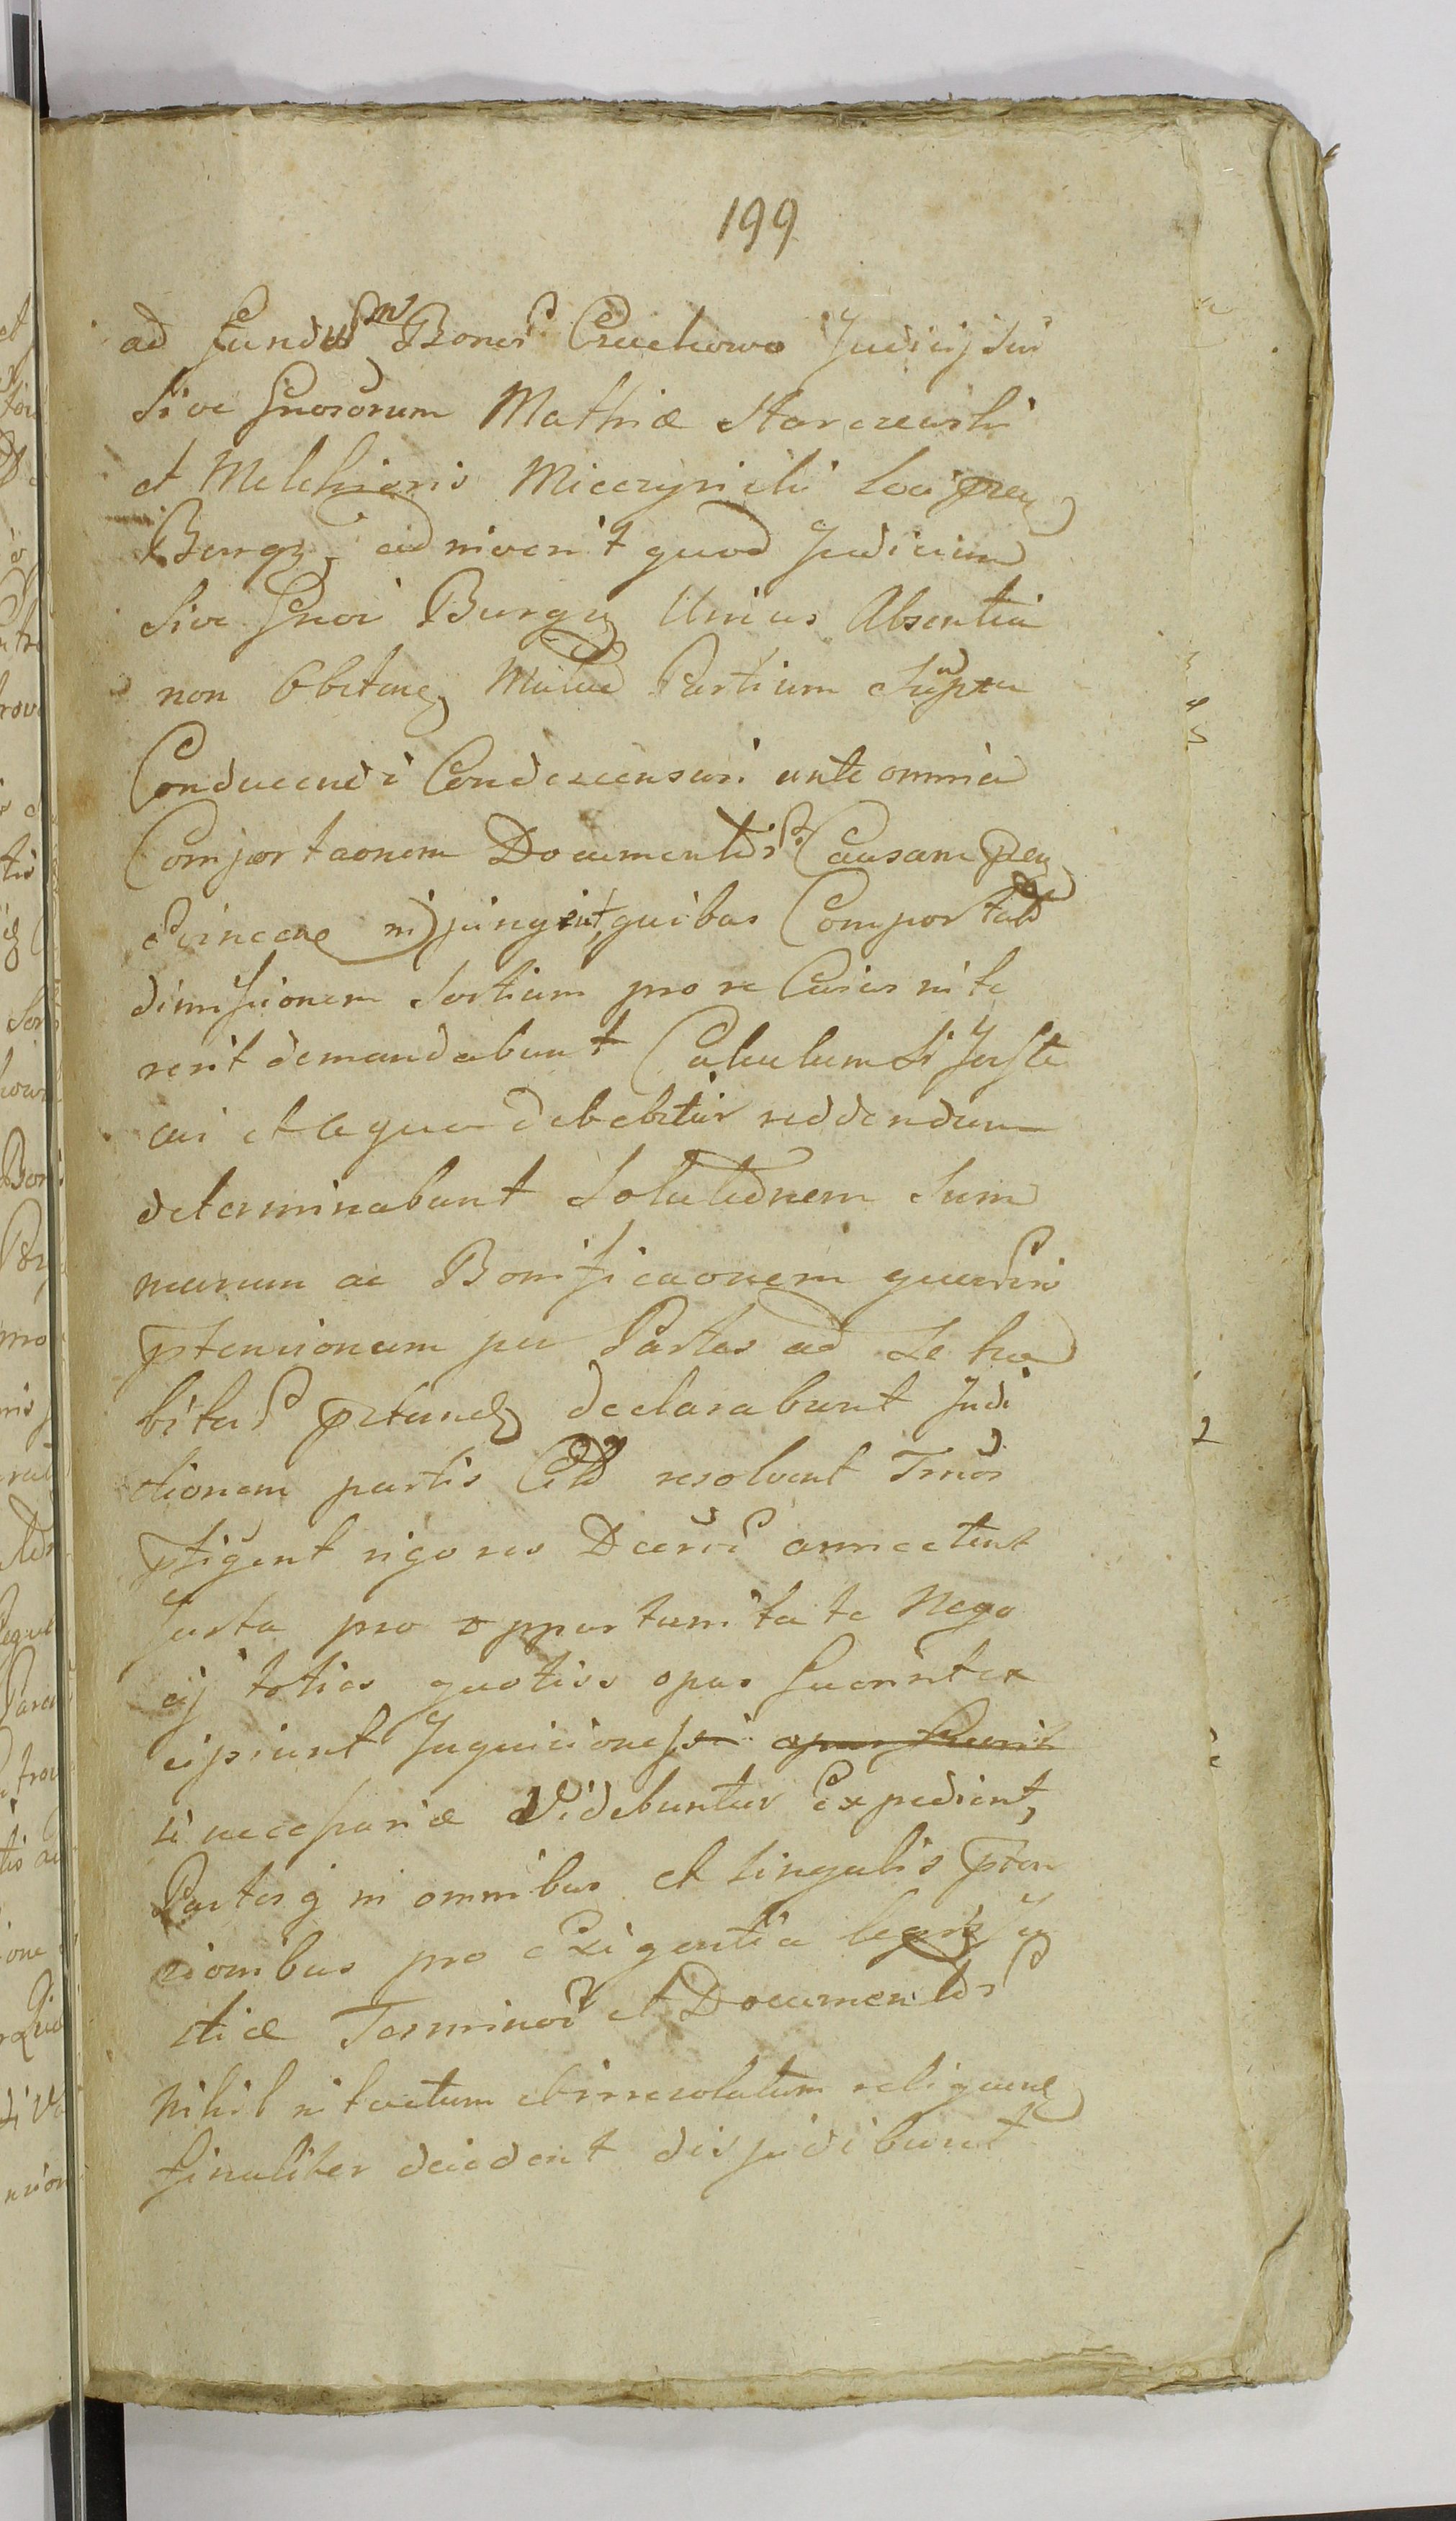 199
ad fundum Bonor Czuchowo Judicij sui
sive Gnosorum Mathiæ Starczewski
et Melchioris Mieczynski Loci
Burgs adinvenit quod Judicium
sive Gnor Burgs Unius Absentia
non Obstane Mutuo Partium Sumptu
Conducendi Condescensuri ante omnia
Comportaonem Documentor Causam
evincere injungent quibus Comportatis
dimissionem Sortium pro re Cuius inte
rerit demandabunt Calculum si Juste
cui et a quo debebitur reddendum
determinabunt Solutionem Sum
marum ac Bonificaonem quarvis
ptensionum per Partes ad se ha
bitar ptand declarabunt Judi
ctionem partis Citt resolvent Tmor
pfigent rigores Decrer annectent
Justa pro opportunitate Nego
cij toties quoties opus fuerit ex
cipient Inquiciones si opus fuerit
si necessariæ Videbuntur Expedient,
Partesq in omnibus et singulis pten
cionibus pro exigentia legis Ju
sticæ Terminor et Documentor
nihil intactum et irresolutum relique
finaliter decident disjudibunt